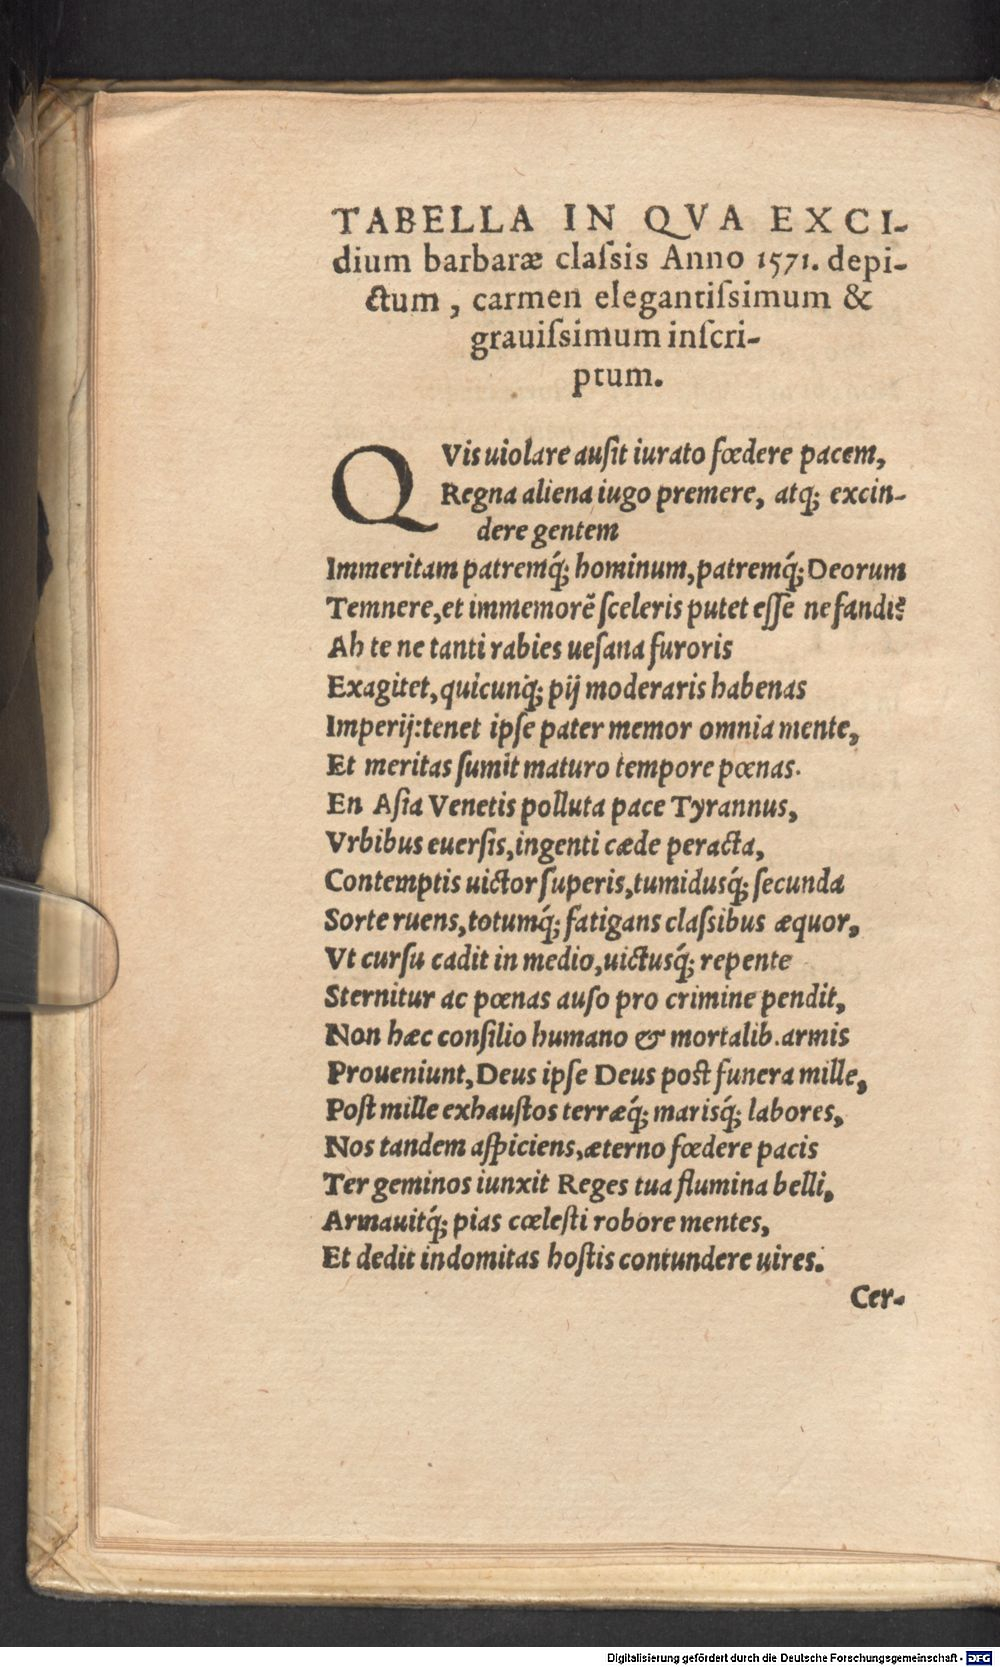 TABELLA IN QVA EXCI-
dium barbaræ claſsis Anno 1571. depi-
ctum, carmen elegantiſsimum &
grauiſsimum inſcri-
ptum.
QVis uiolare auſit iurato fœdere pacem,
Regna aliena iugo premere, atq; excin-
dere gentem
Immeritam patremq́; hominum, patremq́; Deorum
Temnere, et immemorẽ ſceleris putet eſſe nefandi?
Ah te ne tanti rabies ueſana furoris
Exagitet, quicunq; pij moderaris habenas
Imperij: tenet ipſe pater memor omnia mente,
Et meritas ſumit maturo tempore pœnas.
En Aſia Venetis polluta pace Tyrannus,
Vrbibus euerſis, ingenti cæde peracta,
Contemptis uictor ſuperis, tumidusq́; ſecunda
Sorte ruens, totumq́; fatigans claſsibus æquor,
Vt curſu cadit in medio, uictusq́; repente
Sternitur ac pœnas auſo pro crimine pendit,
Non hæc conſilio humano & mortalib. armis
Proueniunt, Deus ipſe Deus poſt funera mille,
Poſt mille exhauſtos terræq́; marisq́; labores,
Nos tandem aſpiciens, æterno fœdere pacis
Ter geminos iunxit Reges tua flumina belli,
Armauitq́; pias cœleſti robore mentes,
Et dedit indomitas hoſtis contundere uires.
Cer-
Digitalisierung gefördert durch die Deutsche Forschungsgemeinschaft - DFG